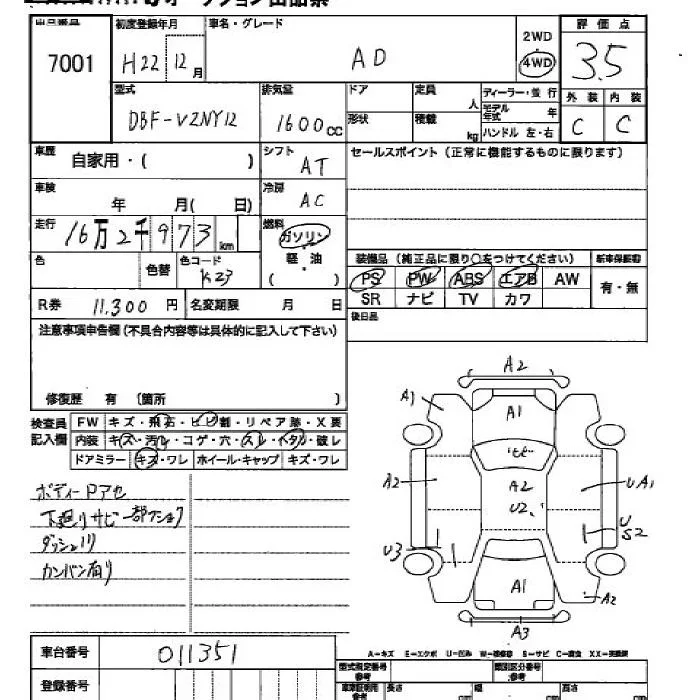 オークション出品票
出品番号 初度登録年月 車名・グレード 評価点
7001 H22 12月 AD 2WD 4WD 3.5
型式 排気量 ドア 定員 ディーラー・並行 外装 内装
DBF-VZNY12 1600cc 形状 人 積載 kg モデル年式 年 ハンドル 左・右 C C
車歴 自家用・( ) シフト AT セールスポイント(正常に機能するものに限ります)
車検 年 月( 日) 冷房 AC
走行 16万2千973km 燃料 ガソリン 軽・油 ( )
色 色替 色コード K23
装備品(純正品に限り○をつけてください) 新車保証書
PS PW ABS エアB AW 有・無
SR ナビ TV カワ
R券 11,300円 名変期限 月 日 後日品
注意事項申告欄(不具合内容等は具体的に記入して下さい)
修復歴 有 (箇所 )
検査員記入欄 FW キズ・飛石・ヒビ割・リペア跡・X要
内装 キズ・汚レ・コゲ・穴・スレ・イタミ・破レ
ドアミラー キズ・ワレ ホイール・キャップ キズ・ワレ
ボディーPアセ
下廻りサビ 一部
カンバン有り
A2
A1 A1
ヒビ
A2 A2 UA1
U2
U3 U S2
A1 A2
A3
A-キズ E-エクボ U-凹み W-補修跡 S-サビ C-腐食 XX-交換済
車台番号 011351
型式指定番号 参考 類別区分番号 参考
登録番号 長さ cm 幅 cm 高さ cm